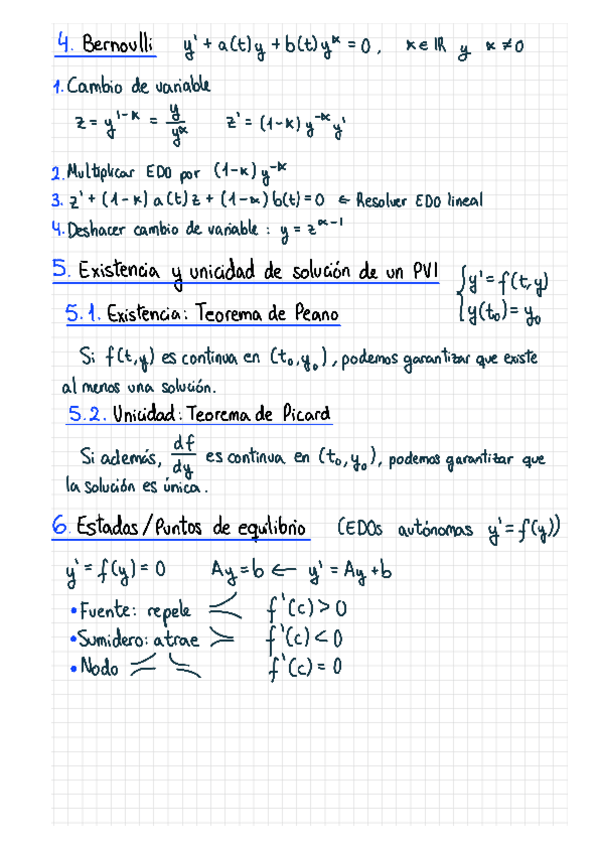 4. Bernoulli y' + a(t)y + b(t)y^α = 0, α∈ℝ y α≠0
1. Cambio de variable
z = y^{1-α} = y/y^α z' = (1-α) y^{-α} y'
2. Multiplicar EDO por (1-α) y^{-α}
3. z' + (1-α) a(t) z + (1-α) b(t) = 0 ← Resolver EDO lineal
4. Deshacer cambio de variable: y = z^{α-1}
5. Existencia y unicidad de solución de un PVI { y' = f(t,y)
y(t₀) = y₀
5.1. Existencia: Teorema de Peano
Si f(t,y) es continua en (t₀,y₀), podemos garantizar que existe
al menos una solución.
5.2. Unicidad: Teorema de Picard
Si además, df/dy es continua en (t₀,y₀), podemos garantizar que
la solución es única.
6. Estados/Puntos de equilibrio (EDOs autónomas y' = f(y))
y' = f(y) = 0 Ay = b ← y' = Ay + b
• Fuente: repele f'(c) > 0
• Sumidero: atrae f'(c) < 0
• Nodo f'(c) = 0